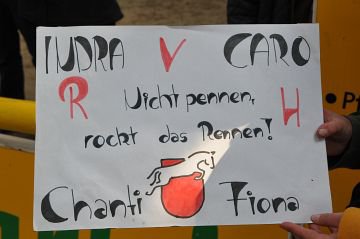 IUDRA V CARO
R Nicht pennen, H
rockt das Rennen!
Chanti Fiona